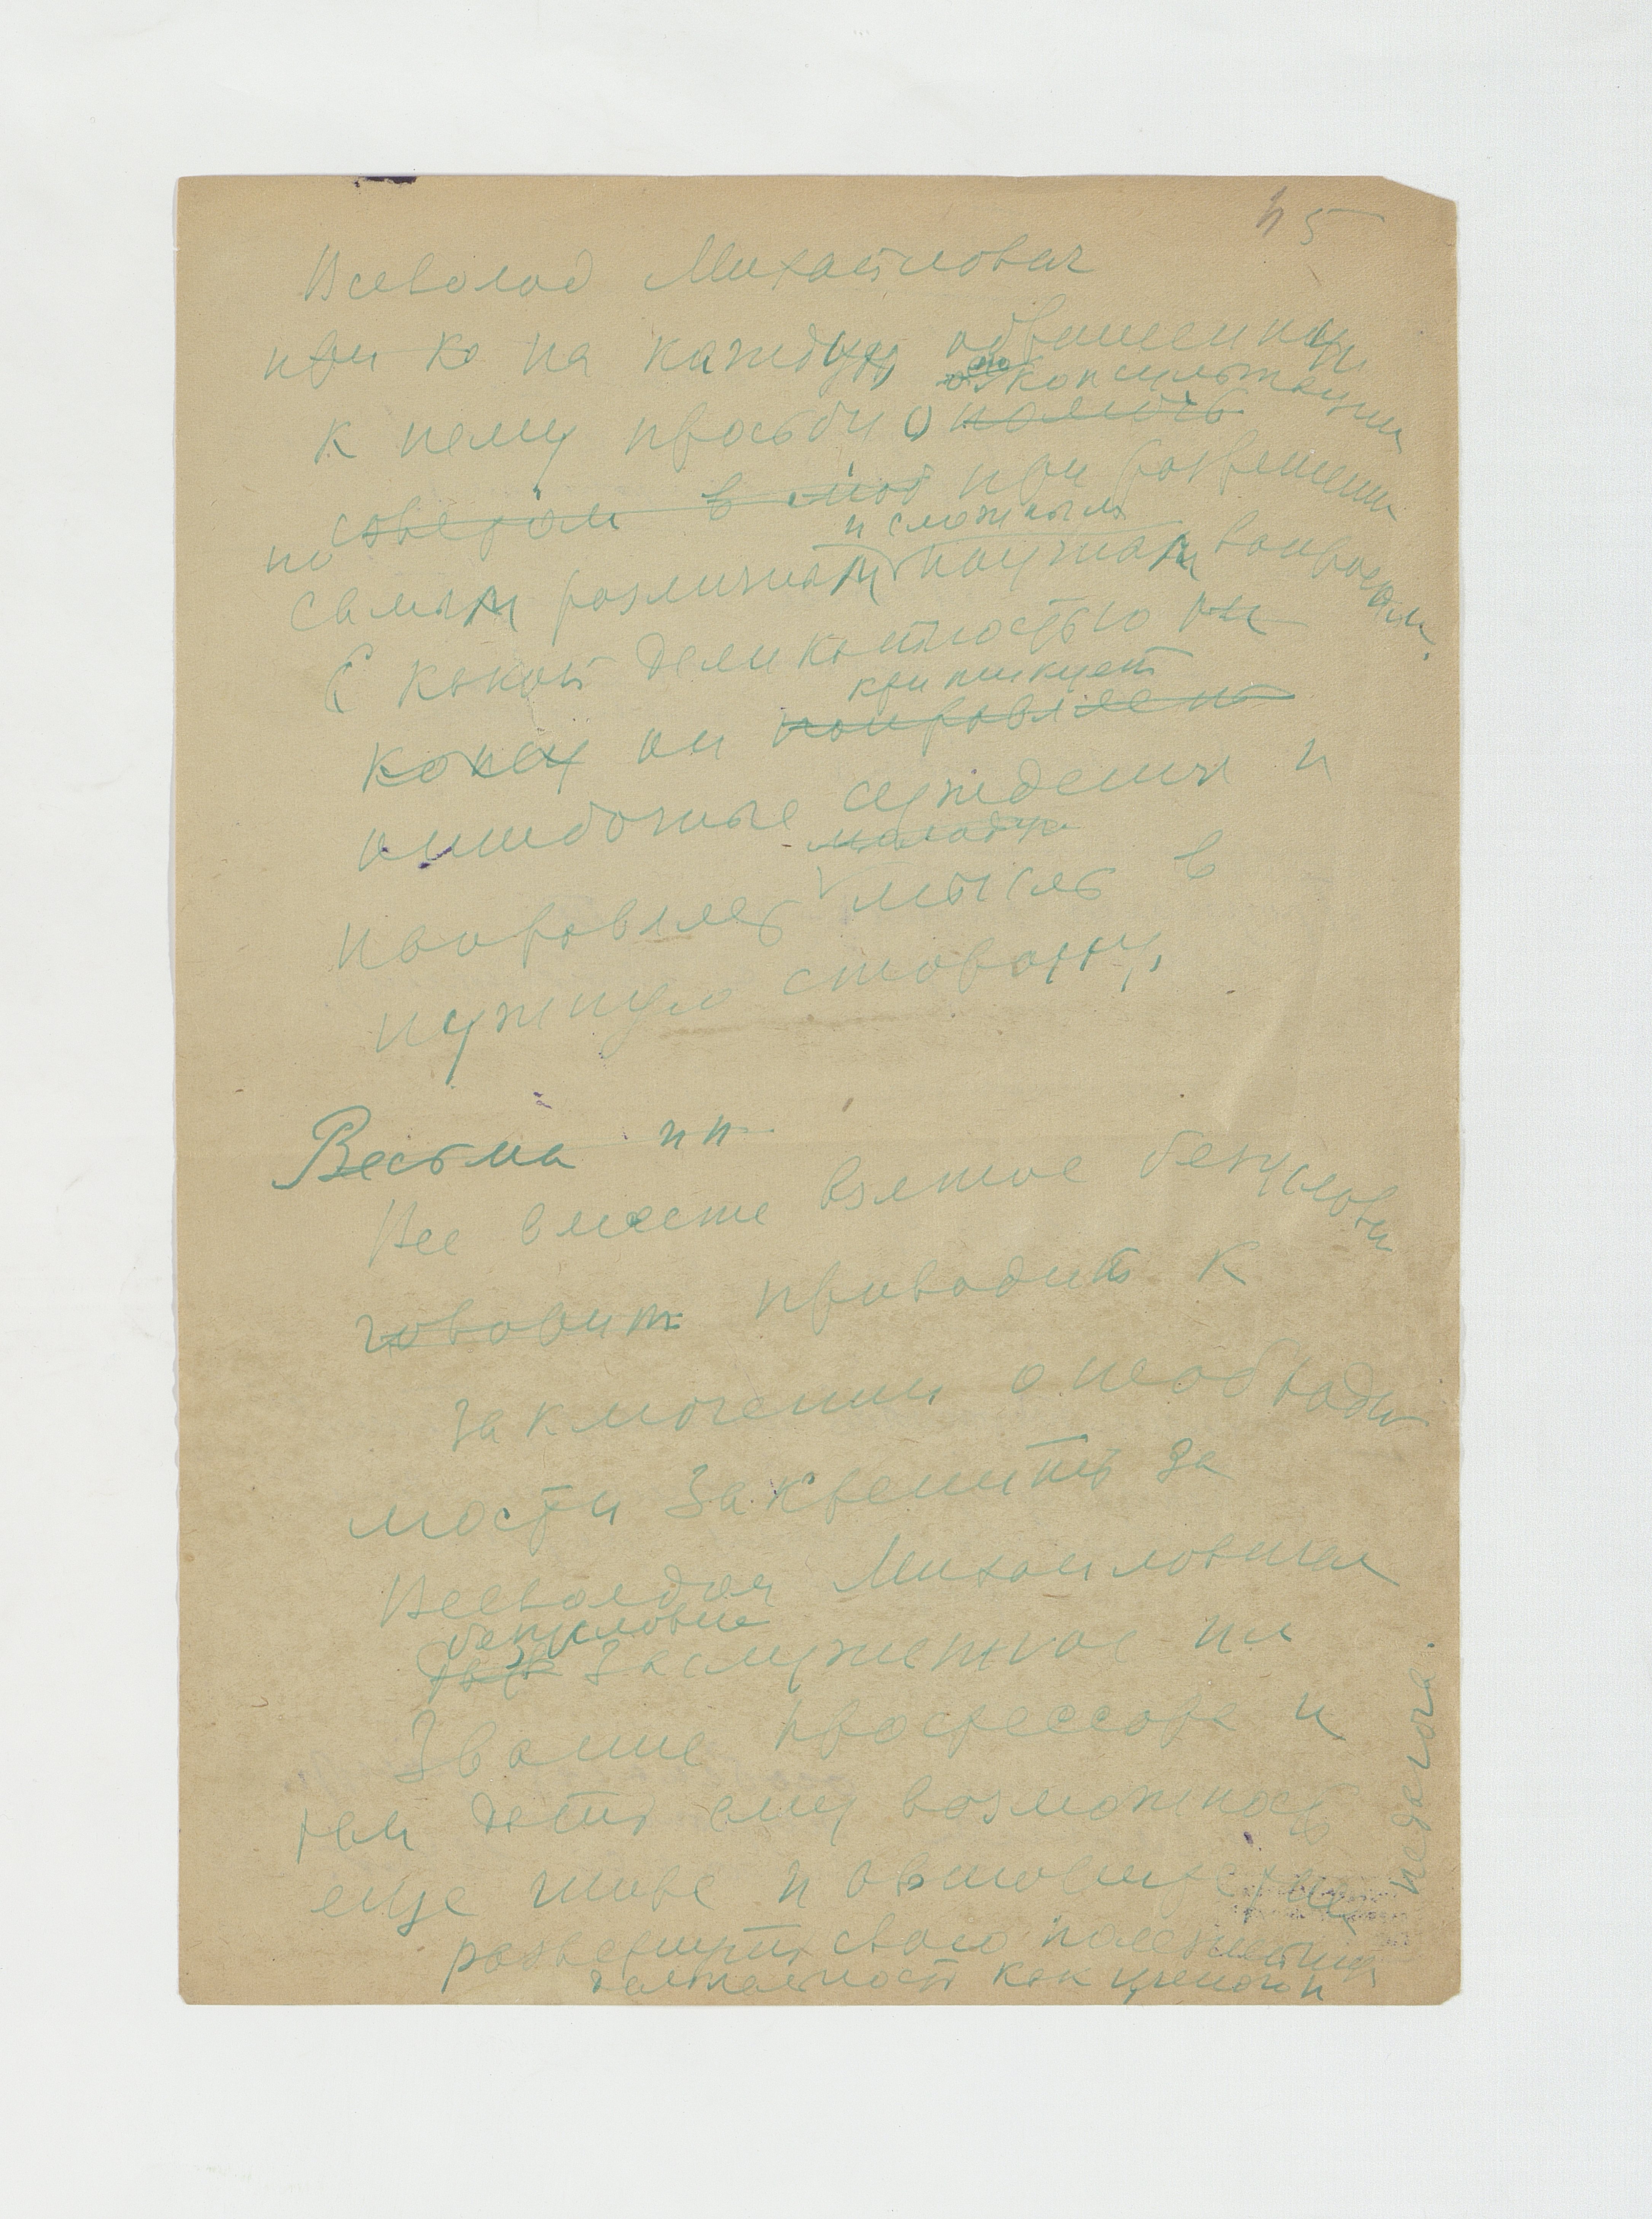 45
Всеволод Михайлович
при ко на каждую обращенную
о консультации
к нему просьбу о помочь
советом в при разрешении
и сложным
по
самым различным научным вопросам.
С какой деликатностью он
критикует
он поправляет
ошибочные суждения и
молодую
направляет мысль в
нужную сторону.
Весьма
Все вместе взятое безусловно
говорит приводит к
заключению о необходи
мости закрепить за
Всеволодом Михайловичем
безусловно
заслуженное им
звание профессора и
тем дать ему возможность
еще шире и
развернуть свою полезную
деятельность как ученого и
педагога.